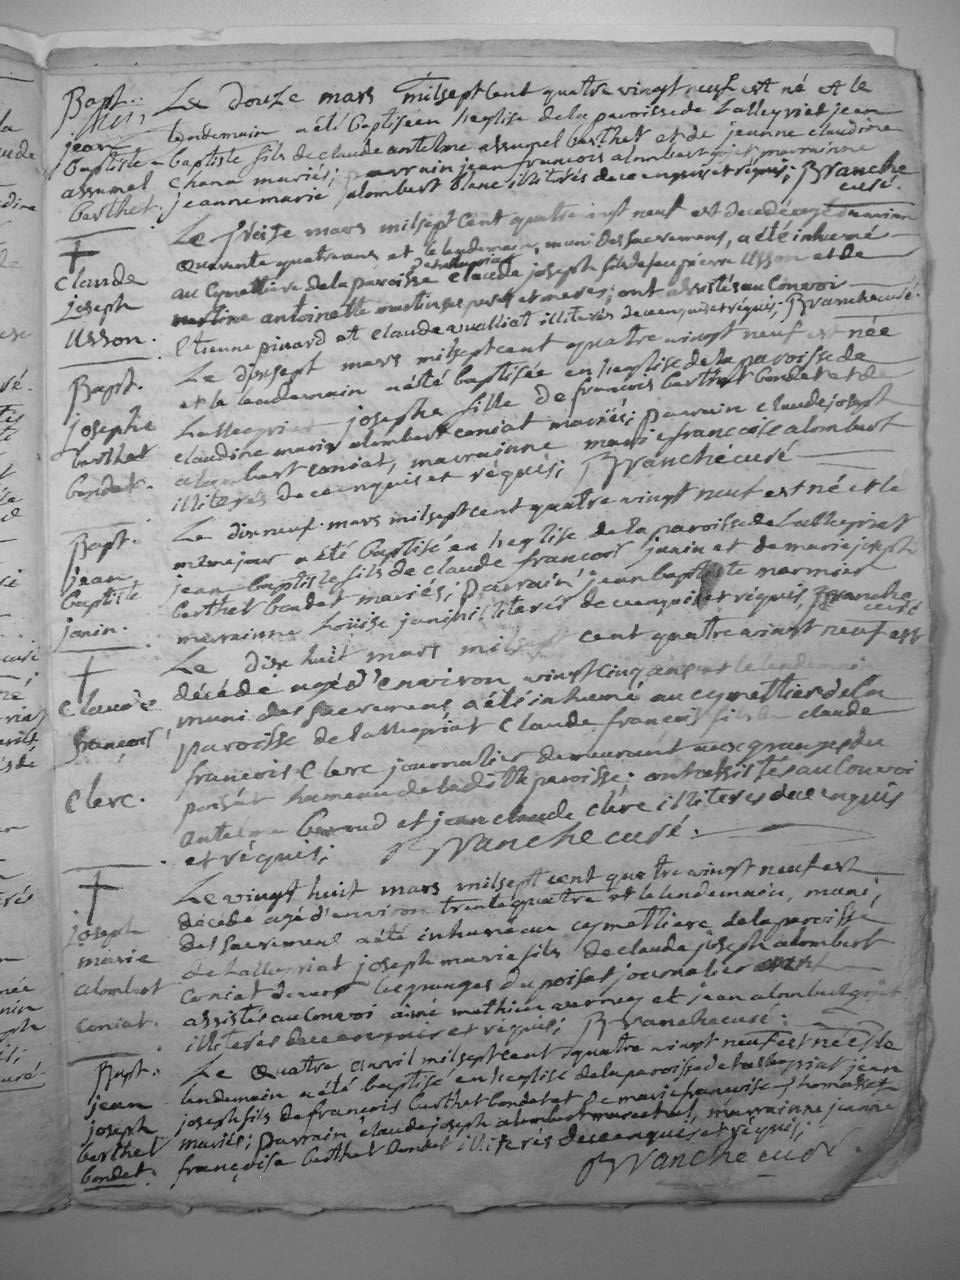 Bapt.
jean
baptiste
assumel
berthet.
Le douze mars milsept cent quatre vingt neuf est né et le
lendemain a été baptisé en leglise de la paroisse de Lalleyriat jean
baptiste fils de claude antelme assumel berthet et de jeanne claudine
Chana mariés; parrain jean francois alombert goget marrainne
jeanne marie alombert blanc illiterés de ce enquis et réquis; Branche
curé.
†
Claude
joseph
Usson.
Le treise mars milsept cent quatre vint neuf est decedé agé d'environ
quarante quatre ans et le lendemain, muni des sacremens, a été inhumé
au Cymettiere de la paroisse de lalleyriat claude joseph fils de feu pierre Usson et de
antoinette ses pere et mere; ont assistés au Convoi
Etienne pinard et claude illiterés de ce enquis et réquis; Branche curé.
Bapt.
josephe
berthet
bondet.
Le dixsept mars milsept cent quatre vingt neuf est née
et le lendemain a été baptisée en leglise de la paroisse de
Lalleyriat josephe fille de francois berthet bondet et de
claudine marie alombert coniat mariés; parrain claude joseph
alombert coniat, marrainne marie francoise alombert
illiterés de ce enquis et réquis; Branche curé
Bapt.
jean
baptiste
janin.
Le dixneuf mars milsept cent quatre vingt neuf est né et le
meme jour a été baptisé en leglise de la paroisse de Lalleyriat
jean baptiste fils de claude francois janin et de marie joseph
berthet bondet mariés; parrain jean baptiste mermier
marrainne Louise janin illiterés de ce enquis et réquis Branche
curé
†
Claude
francois
Clerc.
Le dix huit mars milsept cent quatre vingt neuf est
décédé agé d'environ vingt cinq ans et le lendemain
muni des sacremens a été inhumé au cymettier de la
paroisse de lalleyriat Claude francois fils de claude
francois Clerc journalier demeurant aux granges du
poisat hameau de la ditte paroisse. ont assistés au Convoi
antelme berroud et jean claude clerc illiterés de ce enquis
et réquis; Branche curé.
†
joseph
marie
alombert
coniat.
Le vingt huit mars milsept cent quatre vingt neuf est
décédé agé d'environ trente quatre et le lendemain, muni
des sacremens a été inhumé au cymettiere de la paroisse
de Lalleyriat joseph marie fils de claude joseph alombert
Coniat des granges du poisat journalier ont
assistés au Convoi aimé mathieu et jean alombert goget
illiterés de ce enquis et réquis; Branche curé.
Bapt.
jean
joseph
berthet
bondet.
Le quatre avril milsept cent quatre vingt neuf est né et le
lendemain a été baptisé en leglise de la paroisse de lalleyriat jean
joseph fils de francois berthet bondet et de marie francoise thomasset
mariés; parrain claude joseph alombert marechal, marrainne jeanne
françoise berthet bondet illiterés de ce enquis et réquis;
Branche curé.